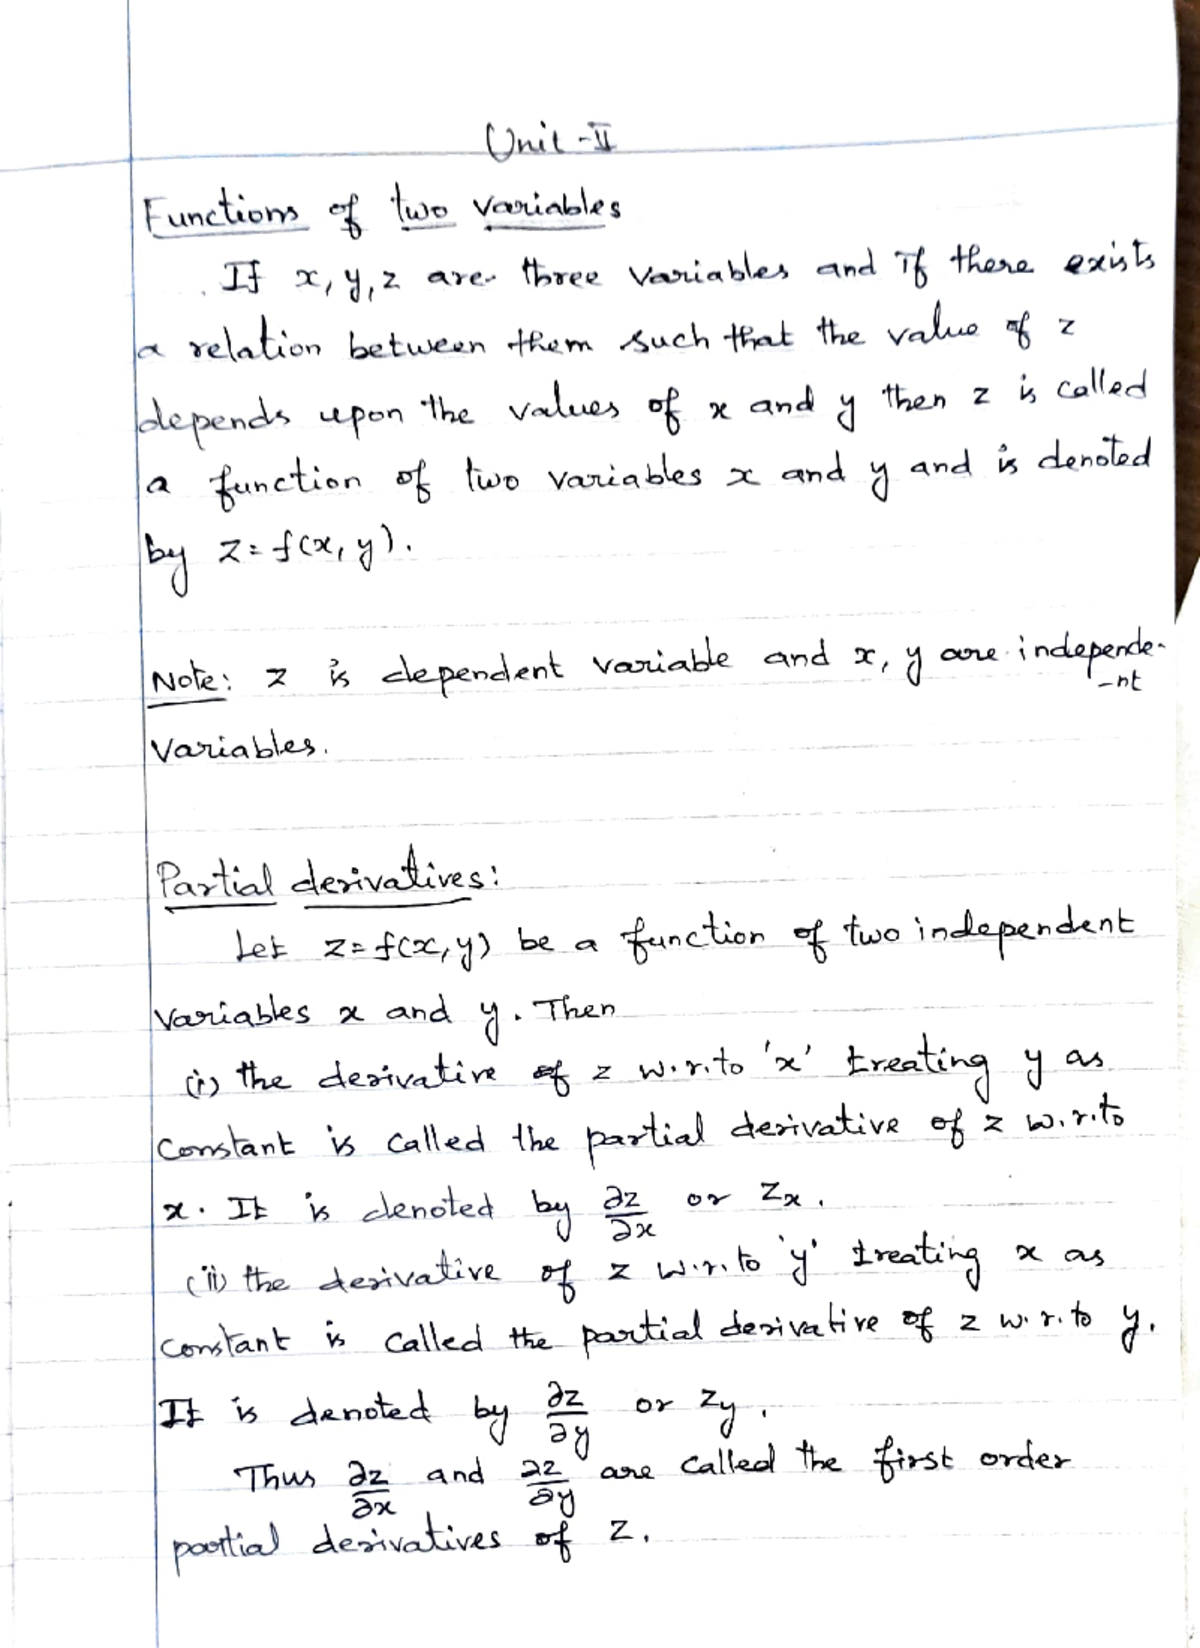 Unit - II
Functions of two variables
If x, y, z are three variables and if there exists
a relation between them such that the value of z
depends upon the values of x and y then z is called
a function of two variables x and y and is denoted
by z = f(x, y).
Note: z is dependent variable and x, y are independe-
-nt
variables.
Partial derivatives:
Let z = f(x, y) be a function of two independent
variables x and y. Then
(i) the derivative of z w.r.to 'x' treating y as
constant is called the partial derivative of z w.r.to
x. It is denoted by ∂z/∂x or Zx.
(ii) the derivative of z w.r.to 'y' treating x as
constant is called the partial derivative of z w.r.to y.
It is denoted by ∂z/∂y or Zy.
Thus ∂z/∂x and ∂z/∂y are called the first order
partial derivatives of z.